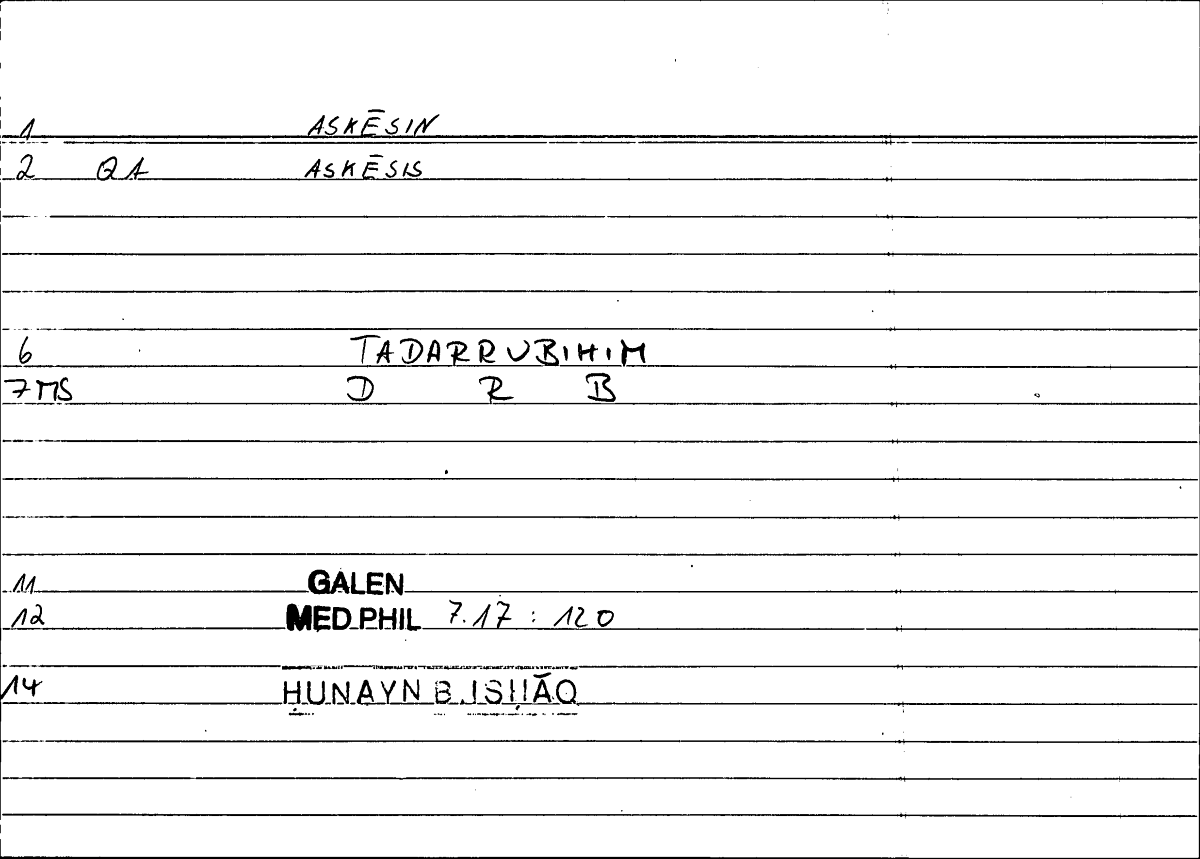 1 ASKĒSIN
2 QA ASKĒSIS
6 TADARRUBIHIM
7 MS D R B
11 GALEN
12 MED PHIL 7.17 : 120
14 ḤUNAYN B. ISḤĀQ